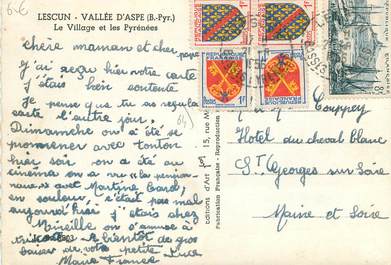 6-6
LESCUN - VALLÉE D'ASPE (B.-Pyr.)
Le Village et les Pyrénées
chère maman et cher papa
j'ai reçu hier votre carte
j'étais bien contente
je pense que tu as reçu la
carte l'autre jour.
Dimanche on a été se
promener avec tonton
hier soir on a été au
cinéma on a vu "les pension-
naire" avec Martine Carol,
en couleur, c'était pas mal
aujourd'hui j'étais chez
Mireille on s'amuse à
tricoter. A bientôt de gros
baiser de votre petite
Marie France
64
Éditions d'Art
15, rue M
Fabrication Française - Reproduction
1F
1F
1F
1F
8F
Couppey
Hotel du cheval blanc
St Georges sur Loire
Maine et Loire